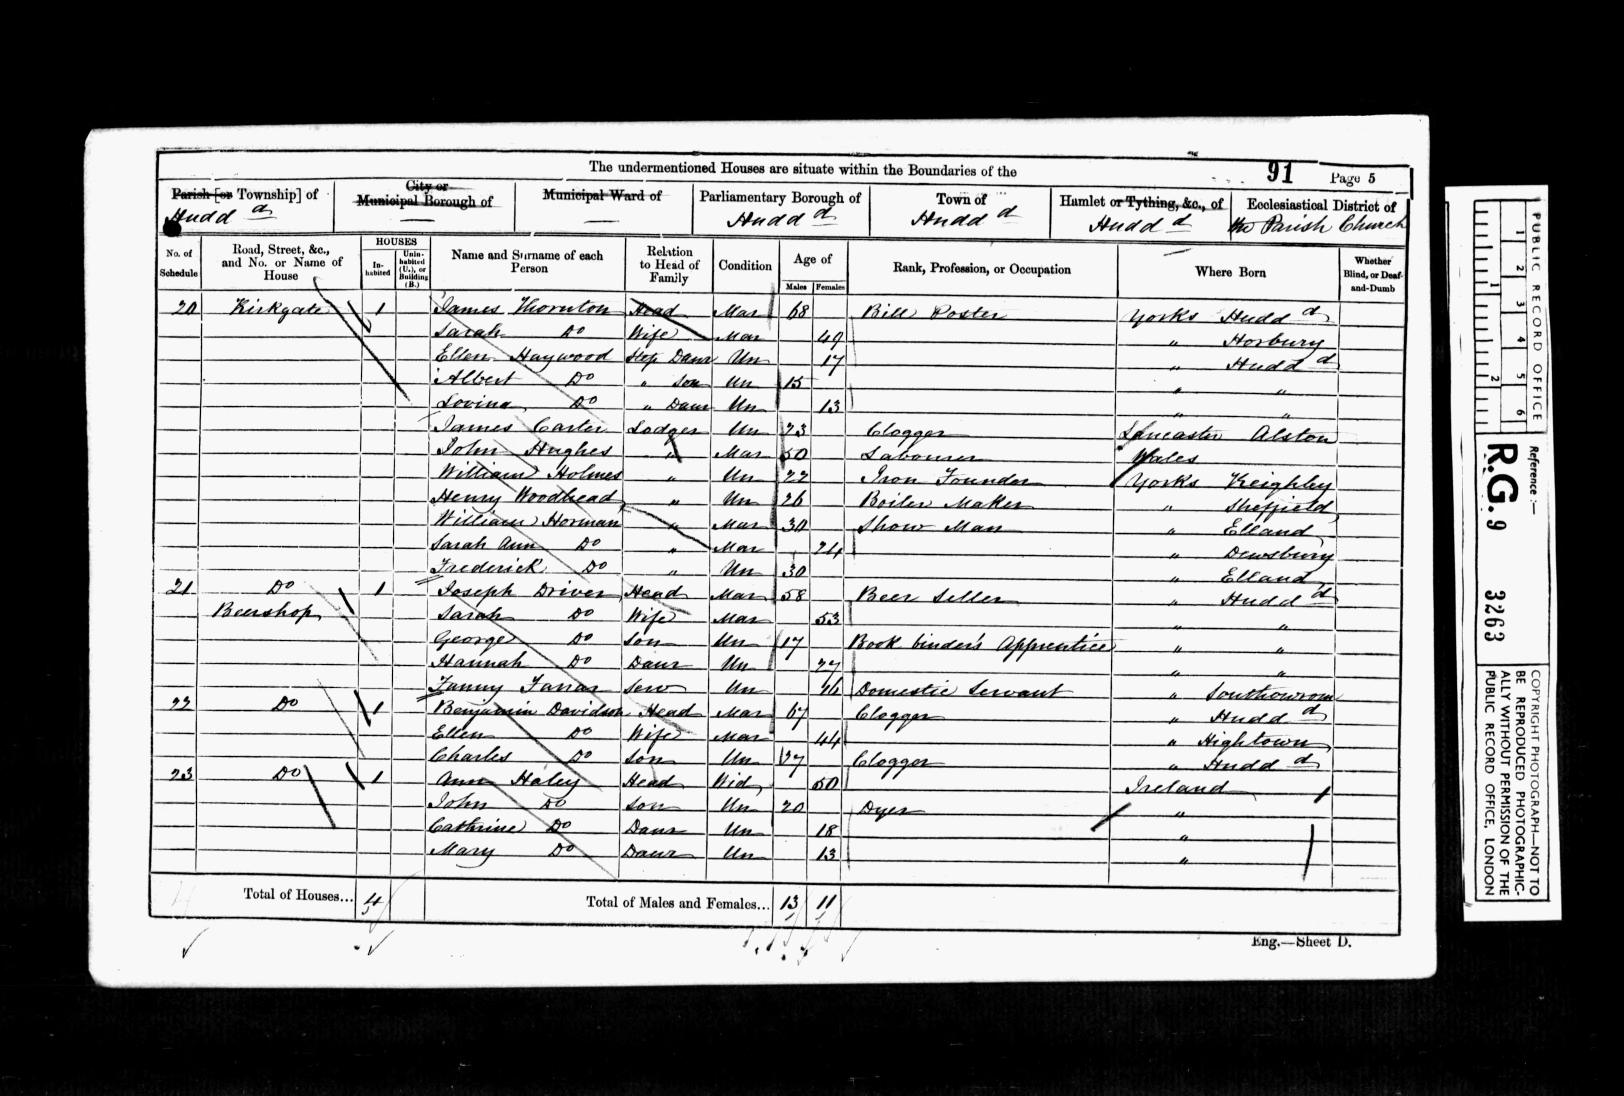 The undermentioned Houses are situate within the Boundaries of the
91 Page 5
Parish [or Township] of
Hudd d
City or Municipal Borough of
Municipal Ward of
Parliamentary Borough of
Hudd d
Town of
Hudd d
Hamlet or Tything, &c., of
Hudd d
Ecclesiastical District of
the Parish Church
No. of Schedule
Road, Street, &c., and No. or Name of House
HOUSES
In-habited
Unin-habited (U.), or Building (B.)
Name and Surname of each Person
Relation to Head of Family
Condition
Age of
Males Females
Rank, Profession, or Occupation
Where Born
Whether Blind, or Deaf-and-Dumb
20 Kirkgate 1 James Thornton Head Mar 68 Bill Poster Yorks Hudd d
Sarah Do Wife Mar 49 " Horbury
Ellen Haywood Step Daur Un 17 " Hudd d
Albert Do " Son Un 15 " "
Lovina Do " Daur Un 13 " "
James Carter Lodger Un 23 Clogger Lancaster Alston
John Hughes " Mar 50 Labourer Wales
William Holmes " Un 22 Iron Founder Yorks Keighley
Henry Woodhead " Un 26 Boiler Maker " Sheffield
William Horman " Mar 30 Show Man " Elland
Sarah Ann Do " Mar 24 " Dewsbury
Frederick Do " Un 30 " Elland
21 Do 1 Joseph Driver Head Mar 58 Beer Seller " Hudd d
Beershop Sarah Do Wife Mar 53 " "
George Do Son Un 17 Book binder's Apprentice " "
Hannah Do Daur Un 27 " "
Fanny Farrar Serv Un 46 Domestic Servant " Southowram
22 Do 1 Benjamin Davidson Head Mar 67 Clogger " Hudd d
Ellen Do Wife Mar 44 " Hightown
Charles Do Son Un 27 Clogger " Hudd d
23 Do 1 Ann Haley Head Wid 50 Ireland
John Do Son Un 20 Dyer "
Cathrine Do Daur Un 18 "
Mary Do Daur Un 13 "
Total of Houses... 4 Total of Males and Females... 13 11
Eng.—Sheet D.
PUBLIC RECORD OFFICE
1 2 3 4 5 6
1 2
Reference :—
R.G. 9 3263
COPYRIGHT PHOTOGRAPH—NOT TO
BE REPRODUCED PHOTOGRAPHIC-
ALLY WITHOUT PERMISSION OF THE
PUBLIC RECORD OFFICE, LONDON